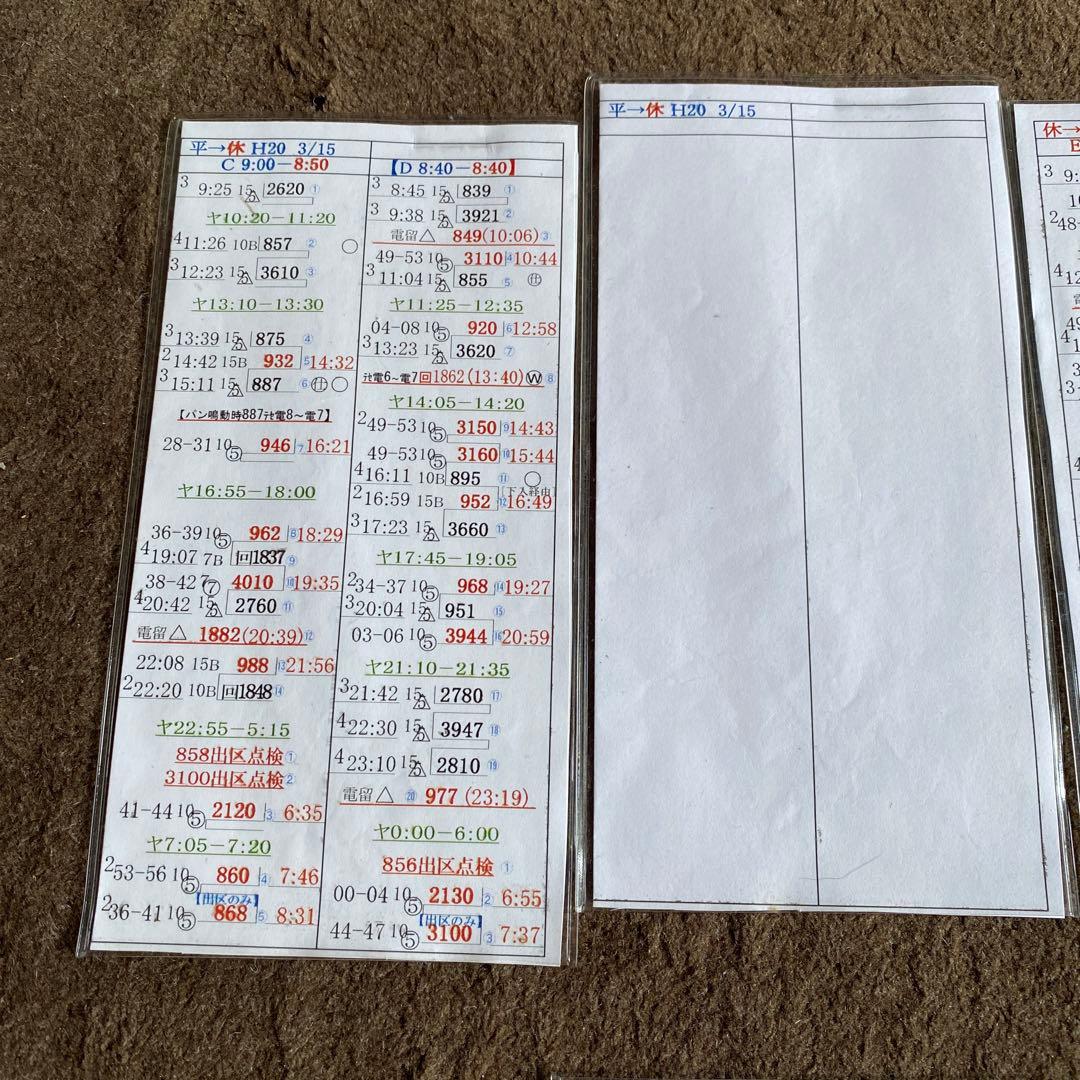 平→休 H20 3/15
C 9:00－8:50
3 9:25 15 △5 2620 ①
ヤ10:20－11:20
4 11:26 10B 857 ② ○
3 12:23 15 △5 3610 ③
ヤ13:10－13:30
3 13:39 15 △5 875 ④
2 14:42 15B 932 ⑤ 14:32
3 15:11 15 △5 887 ⑥ ㊓ ○
【バン鳴動時887ﾃｾ電8～電7】
28-31 10 ⑤ 946 ⑦ 16:21
ヤ16:55－18:00
36-39 10 ⑤ 962 ⑧ 18:29
4 19:07 7B 回1837 ⑨
38-42 7 ⑦ 4010 ⑩ 19:35
4 20:42 15 △5 2760 ⑪
電留△ 1882(20:39) ⑫
22:08 15B 988 ⑬ 21:56
2 22:20 10B 回1848 ⑭
ヤ22:55－5:15
858出区点検 ①
3100出区点検 ②
41-44 10 ⑤ 2120 ③ 6:35
ヤ7:05－7:20
2 53-56 10 ⑤ 860 ④ 7:46
【出区のみ】
2 36-41 10 ⑤ 868 ⑤ 8:31
【D 8:40－8:40】
3 8:45 15 △5 839 ①
3 9:38 15 △5 3921 ②
電留△ 849(10:06) ③
49-53 10 ⑤ 3110 ④ 10:44
3 11:04 15 △5 855 ⑤ ㊓
ヤ11:25－12:35
04-08 10 ⑤ 920 ⑥ 12:58
3 13:23 15 △5 3620 ⑦
ﾃｾ電6～電7 回1862(13:40) Ⓦ ⑧
ヤ14:05－14:20
2 49-53 10 ⑤ 3150 ⑨ 14:43
49-53 10 ⑤ 3160 ⑩ 15:44
4 16:11 10B 895 ⑪ ○
[下入経由]
2 16:59 15B 952 ⑫ 16:49
3 17:23 15 △5 3660 ⑬
ヤ17:45－19:05
2 34-37 10 ⑤ 968 ⑭ 19:27
3 20:04 15 △5 951 ⑮
03-06 10 ⑤ 3944 ⑯ 20:59
ヤ21:10－21:35
3 21:42 15 △5 2780 ⑰
4 22:30 15 △5 3947 ⑱
4 23:10 15 △5 2810 ⑲
電留△ ⑳ 977 (23:19)
ヤ0:00－6:00
856出区点検 ①
00-04 10 ⑤ 2130 ② 6:55
【出区のみ】
44-47 10 ⑤ 3100 ③ 7:37
平→休 H20 3/15
休→
E
3 9: